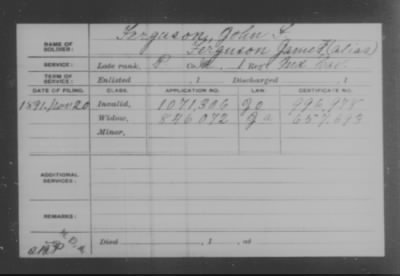 Ferguson, John F.
NAME OF SOLDIER: Ferguson James (alias)
SERVICE: Late rank, P Co. 1 Reg't Ind. Cav.
TERM OF SERVICE: Enlisted , 1 Discharged , 1
DATE OF FILING. CLASS. APPLICATION NO. LAW. CERTIFICATE NO.
1891. Nov 20 Invalid, 1071,306 996,978
Widow, 846,072 657,693
Minor,
ADDITIONAL SERVICES:
REMARKS:
Died , 1 , at